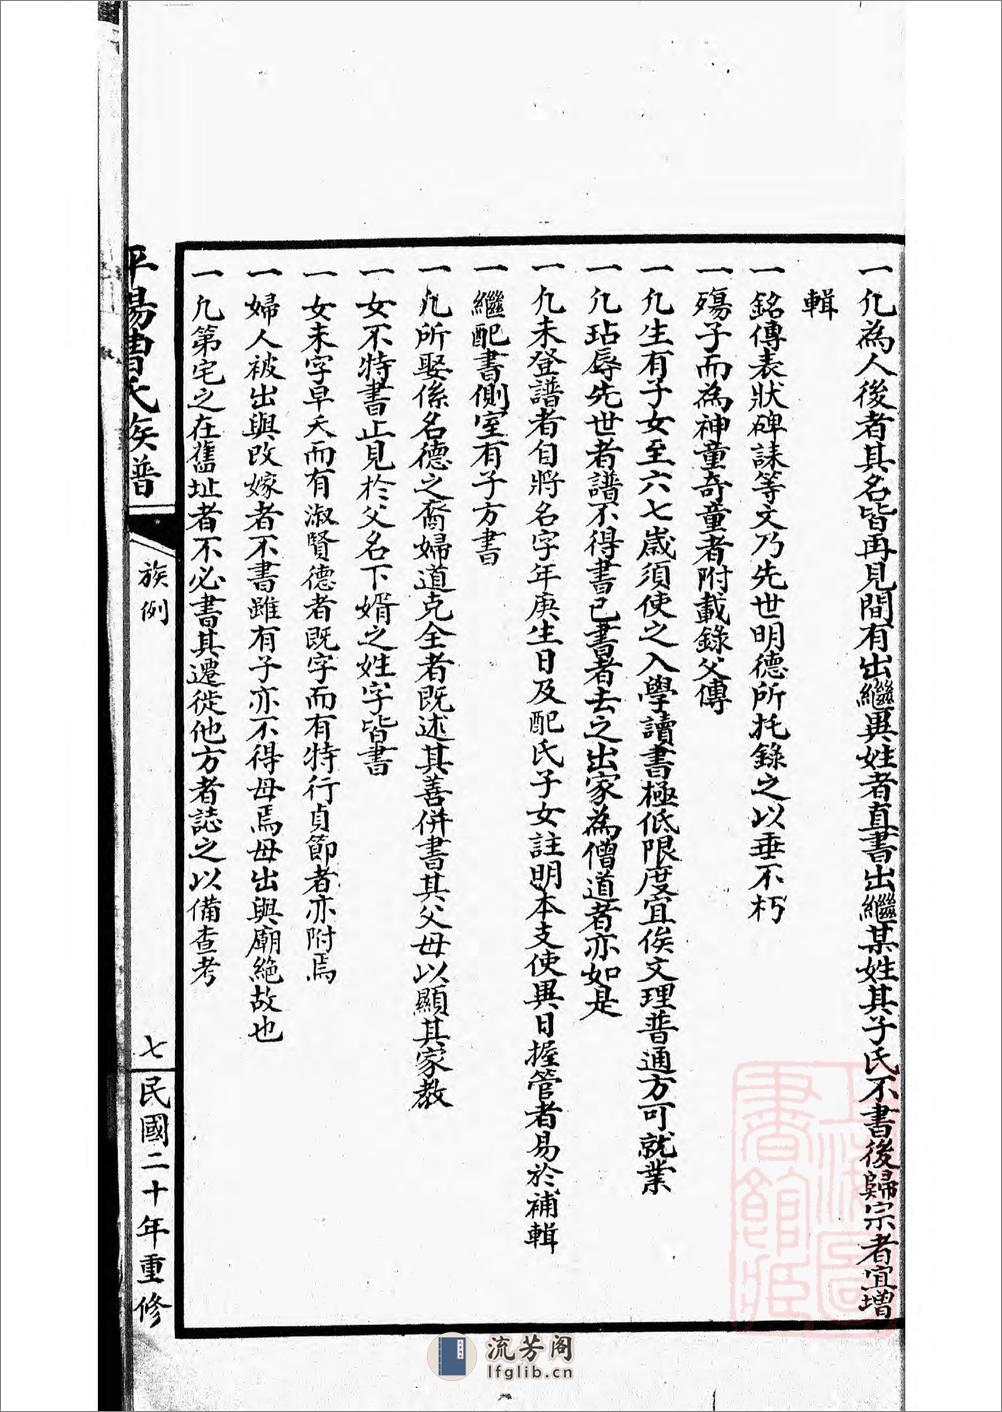 一凢為人後者其名皆再見間有出繼異姓者直書出繼某姓其子氏不書後歸宗者宜增
輯
一銘傳表狀碑誄等文乃先世明德所托錄之以垂不朽
一殤子而為神童奇童者附載錄父傳
一凢生有子女至六七歲須使之入學讀書極低限度宜俟文理普通方可就業
一凢玷辱先世者譜不得書已書者去之出家為僧道者亦如是
一凢未登譜者自將名字年庚生日及配氏子女註明本支使異日握管者易於補輯
一繼配書側室有子方書
一凢所娶係名德之裔婦道克全者既述其善併書其父母以顯其家教
一女不特書止見於父名下婿之姓字皆書
一女未字早夭而有淑賢德者既字而有特行貞節者亦附焉
一婦人被出與改嫁者不書雖有子亦不得母焉母出與廟絕故也
一凢第宅之在舊址者不必書其遷徙他方者誌之以備查考
平陽曹氏族譜
族例
七
民國二十年重修
上海圖
書館藏
流芳阁
lfglib.cn